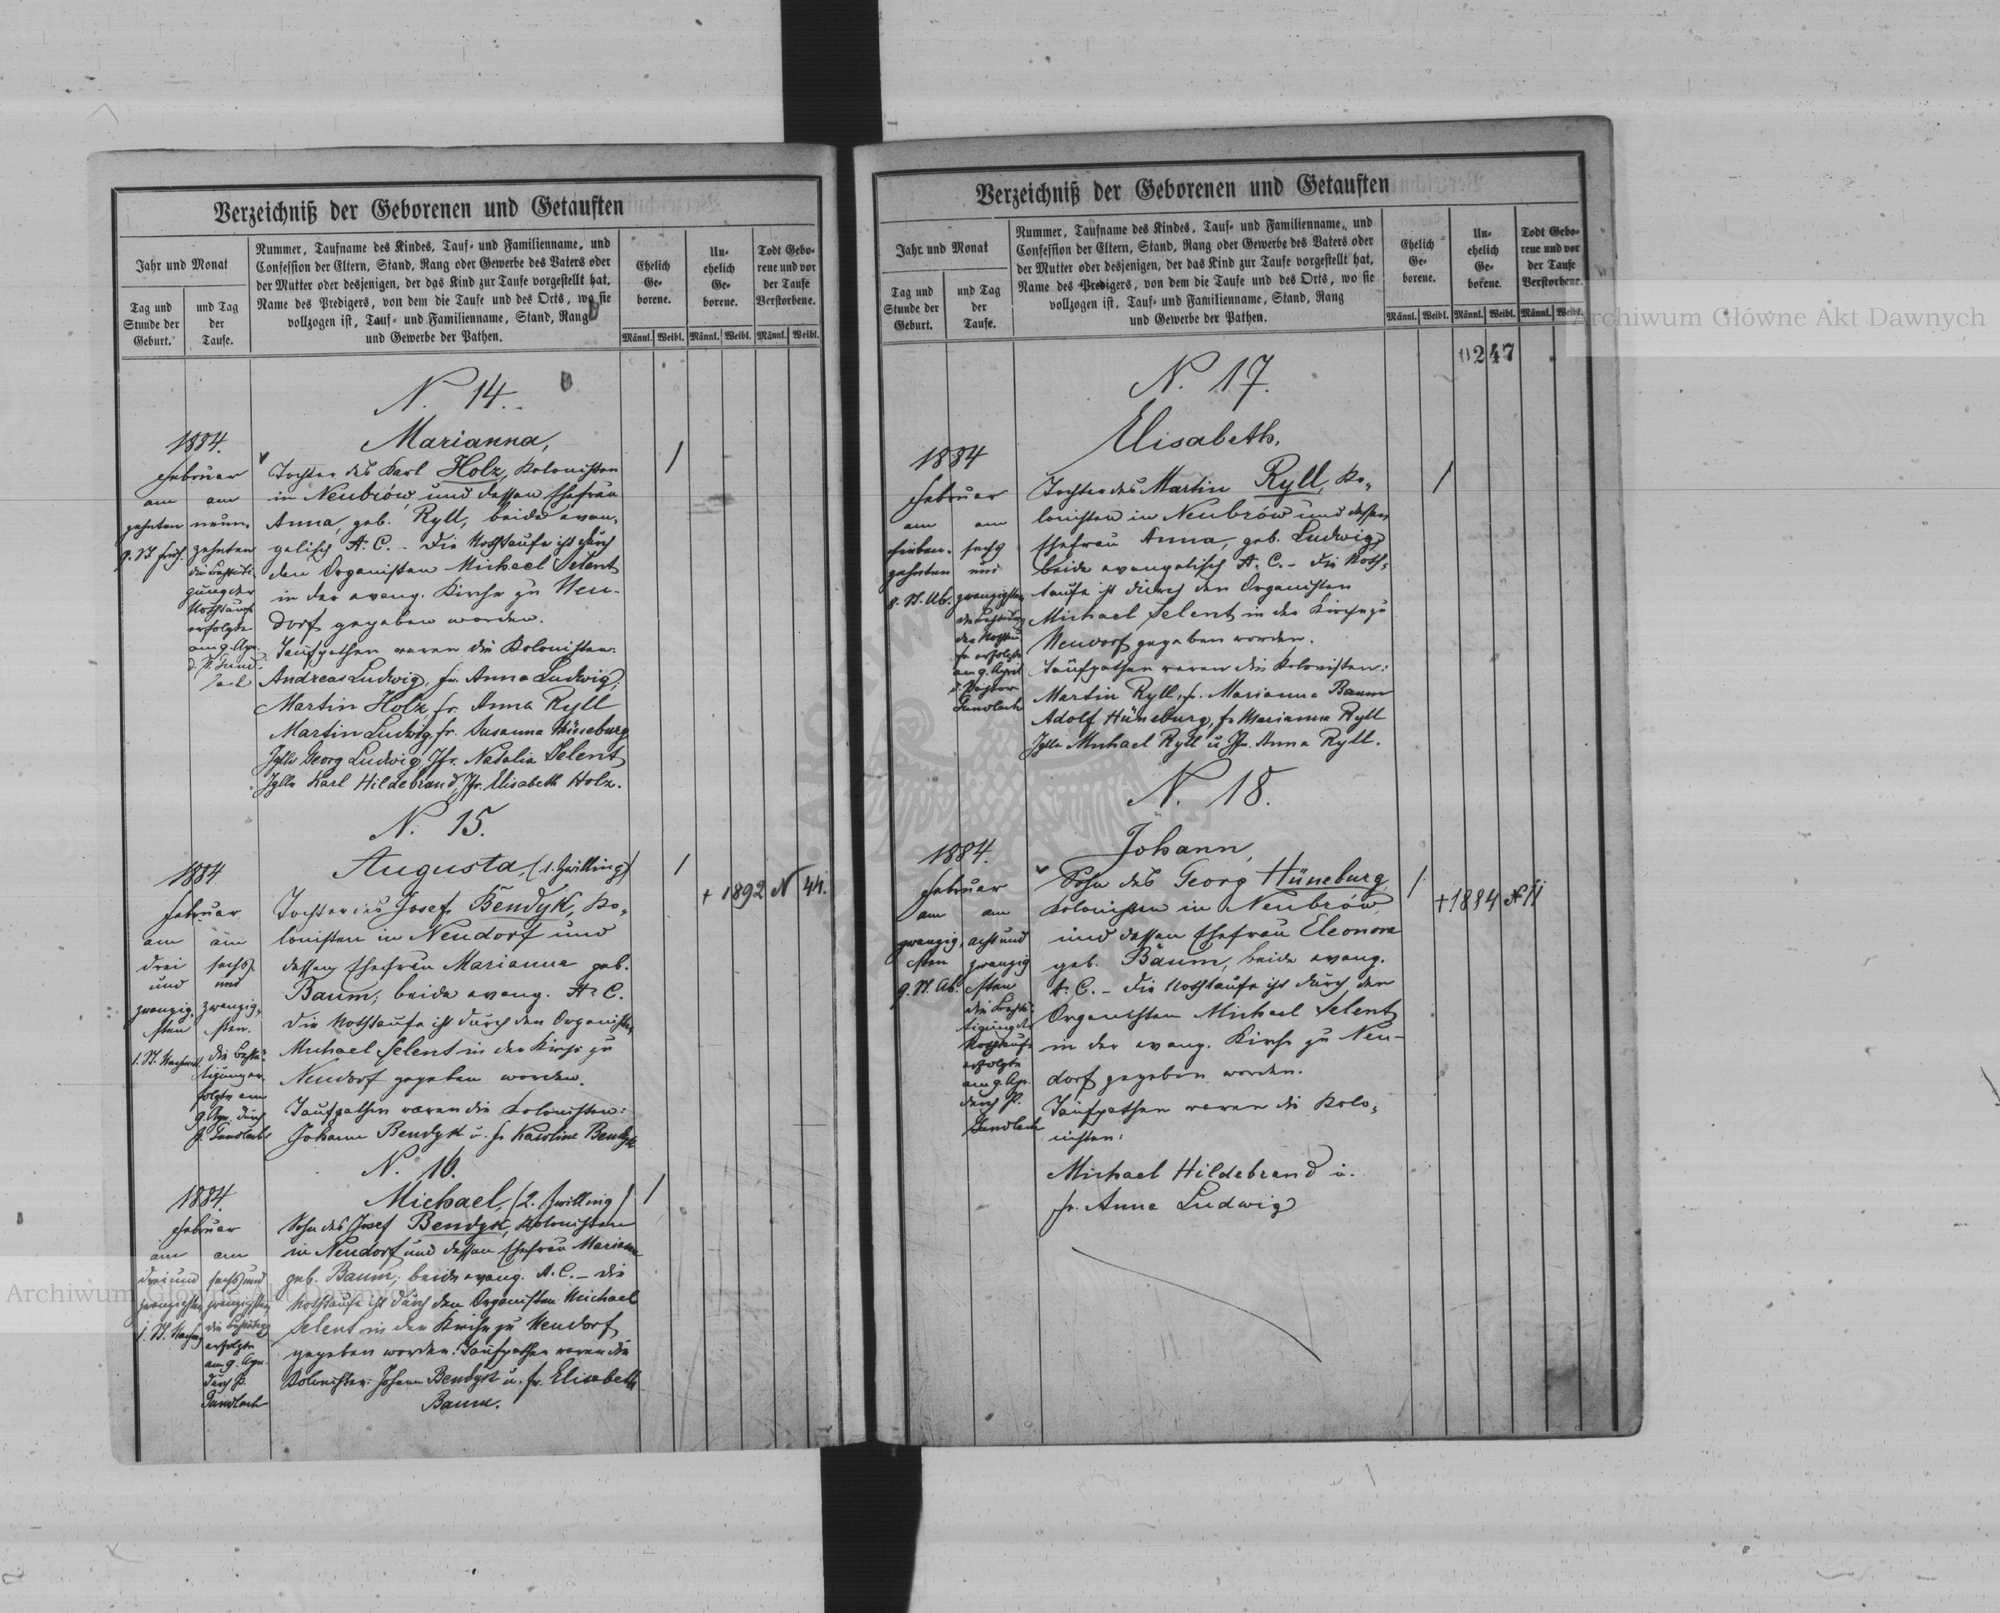 Verzeichniß der Geborenen und Getauften
Jahr und Monat
Tag und
Stunde der
Geburt.
und Tag
der
Taufe.
Nummer, Taufname des Kindes, Tauf- und Familienname, und
Confession der Eltern, Stand, Rang oder Gewerbe des Vaters oder
der Mutter oder desjenigen, der das Kind zur Taufe vorgestellt hat,
Name des Predigers, von dem die Taufe und des Orts, wo sie
vollzogen ist, Tauf- und Familienname, Stand, Rang
und Gewerbe der Pathen.
Ehelich
Ge-
borene.
Un-
ehelich
Ge-
borene.
Todt Gebo-
rene und vor
der Taufe
Verstorbene.
Männl. Weibl. Männl. Weibl. Männl. Weibl.
N. 14.
1884.
Februar
am
zehnten
9. St. früh.
am
neun-
zehnten
die Bestäti-
gung der
Nothtaufe
erfolgte
am 9. Apr.
Marianna,
Tochter des Karl Holz, Kolonisten
in Neubrów, und dessen Ehefrau
Anna, geb. Ryll, beide evan-
gelisch A. C. – Die Nothtaufe ist durch
den Organisten Michael Selent
in der evang. Kirche zu Neu-
dorf gegeben worden.
Taufpathen waren die Kolonisten:
Andreas Ludwig, fr. Anna Ludwig,
Martin Holz, fr. Anna Ryll
Martin Ludwig, fr. Susanna Hüneburg
Jglle Georg Ludwig, Jfr. Natalia Selent
Jglle Karl Hildebrand, Jfr. Elisabeth Holz.
N. 15.
1884
Februar
am
drei
und
zwanzig-
sten
1. St. Nachmit.
am
sechs
und
zwanzig-
sten.
die Bestä-
tigung er-
folgte am
9. Apr. durch
P. Gundlach
Augusta, (1. Zwilling)
Tochter des Josef Bendyk, Ko-
lonisten in Neudorf und
dessen Ehefrau Marianna geb.
Baum, beide evang. A. C.
Die Nothtaufe ist durch den Organisten
Michael Selent in der Kirche zu
Neudorf gegeben worden.
Taufpathen waren die Kolonisten:
Johann Bendyk u. fr. Karoline Bendyk
† 1892 N 44.
N. 16.
1884.
Februar
am
drei und
zwanzigsten
1. St. Nachm.
am
sechs und
zwanzigsten
die Bestätigung
erfolgte
am 9. Apr.
durch P.
Gundlach
Michael, (2. Zwilling)
Sohn des Josef Bendyk, Kolonisten
in Neudorf und dessen Ehefrau Marianna
geb. Baum, beide evang. A. C. – Die
Nothtaufe ist durch den Organisten Michael
Selent in der Kirche zu Neudorf
gegeben worden. Taufpathen waren die
Kolonisten: Johann Bendyk u. fr. Elisabeth
Baum.
Verzeichniß der Geborenen und Getauften
Jahr und Monat
Tag und
Stunde der
Geburt.
und Tag
der
Taufe.
Nummer, Taufname des Kindes, Tauf- und Familienname, und
Confession der Eltern, Stand, Rang oder Gewerbe des Vaters oder
der Mutter oder desjenigen, der das Kind zur Taufe vorgestellt hat,
Name des Predigers, von dem die Taufe und des Orts, wo sie
vollzogen ist, Tauf- und Familienname, Stand, Rang
und Gewerbe der Pathen.
Ehelich
Ge-
borene.
Un-
ehelich
Ge-
borene.
Todt Gebo-
rene und vor
der Taufe
Verstorbene.
Männl. Weibl. Männl. Weibl. Männl. Weibl.
0247
N. 17.
1884
Februar
am
sieben-
zehnten
8. St. Ab.
am
sechs
und
zwanzigsten
die Bestätig.
der Nothtau-
fe erfolgte
am 9. April
d. Pastor
Gundlach
Elisabeth.
Tochter des Martin Ryll, Ko-
lonisten in Neubrów und dessen
Ehefrau Anna, geb. Ludwig,
beide evangelisch A. C. – Die Noth-
taufe ist durch den Organisten
Michael Selent in der Kirche zu
Neudorf gegeben worden.
Taufpathen waren die Kolonisten:
Martin Ryll, fr. Marianna Baum
Adolf Hüneburg, fr. Marianna Ryll
Jglle Michael Ryll u. Jfr. Anna Ryll.
N. 18.
1884.
Februar
am
zwanzig-
sten
9. St. Ab.
am
acht und
zwanzig
sten
die Bestä-
tigung der
Nothtaufe
erfolgte
am 9. Apr.
durch P.
Gundlach
Johann,
Sohn des Georg Hüneburg
Kolonisten in Neubrów,
und dessen Ehefrau Eleonora
geb. Baum, beide evang.
A. C. – Die Nothtaufe ist durch den
Organisten Michael Selent
in der evang. Kirche zu Neu-
dorf gegeben worden.
Taufpathen waren die Kolo-
nisten:
Michael Hildebrand u.
fr. Anna Ludwig
† 1884 N 11
Archiwum Główne Akt Dawnych
Archiwum Główne Akt Dawnych